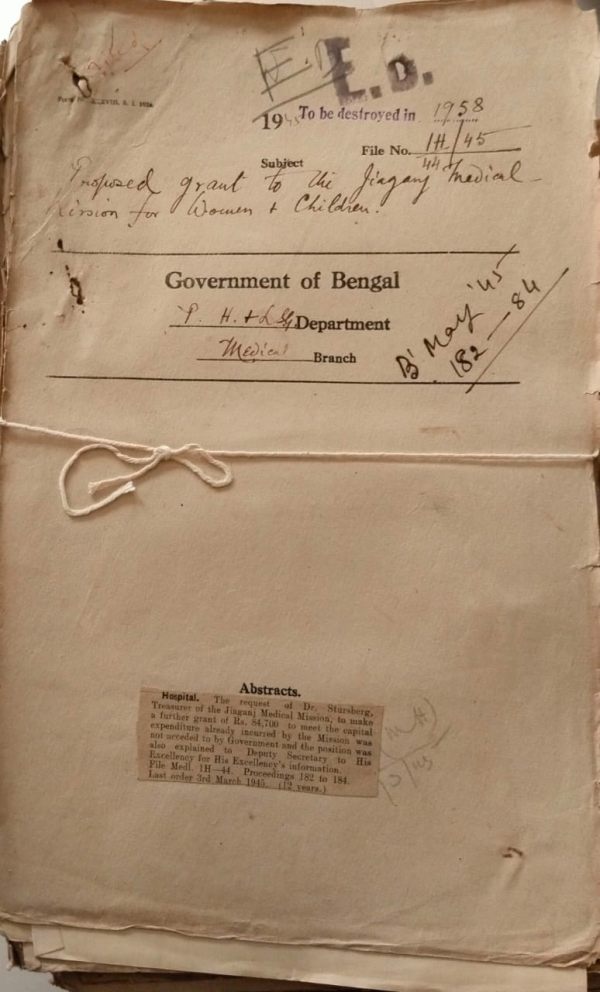 E.D.
1945 To be destroyed in 1958
File No. 1H/45
44
Subject
Proposed grant to the Jiaganj Medical
Mission for Women & Children.
Government of Bengal
P. H. & L. S. G. Department
Medical Branch
B' May '45
182 — 84
Abstracts.
Hospital. The request of Dr. Stursberg,
Treasurer of the Jiaganj Medical Mission, to make
a further grant of Rs. 84,700 to meet the capital
expenditure already incurred by the Mission was
not acceded to by Government and the position was
also explained to Deputy Secretary to His
Excellency for His Excellency's information.
File Medl. 1H—44. Proceedings 182 to 184.
Last order 3rd March 1945. (12 years.)